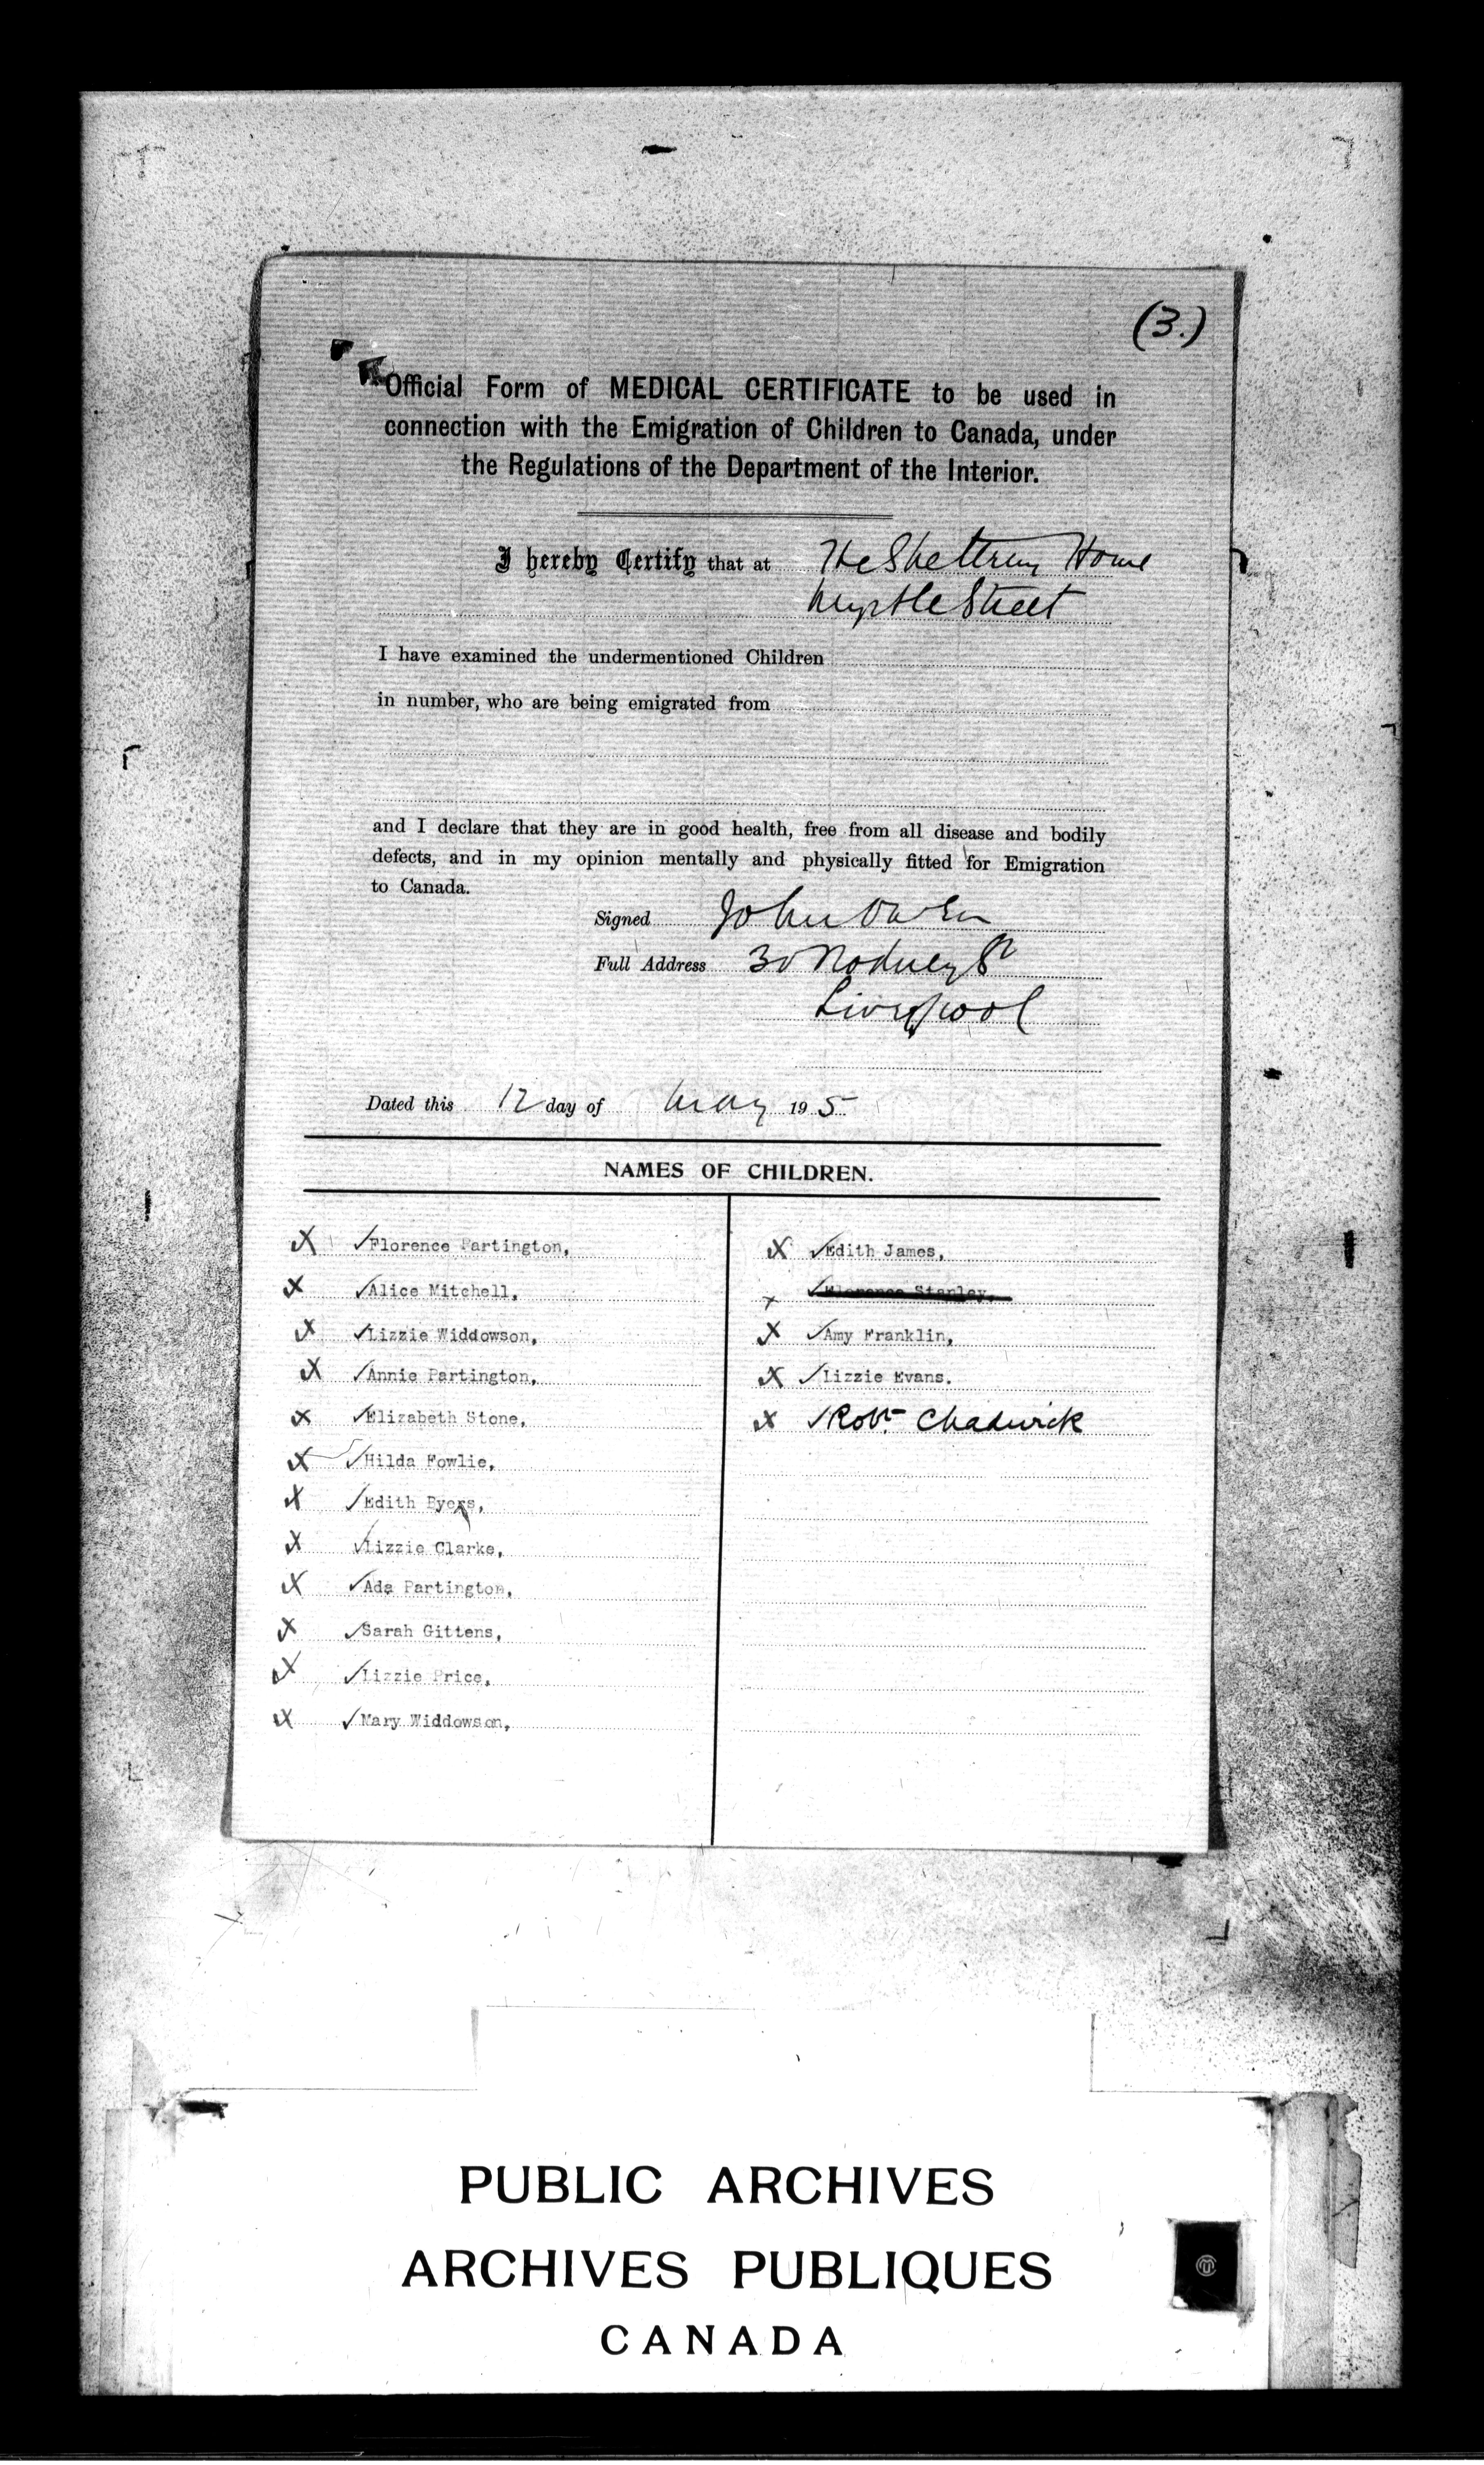 (3.)
Official Form of MEDICAL CERTIFICATE to be used in
connection with the Emigration of Children to Canada, under
the Regulations of the Department of the Interior.
I hereby Certify that at The Sheltering Home
Myrtle Street
I have examined the undermentioned Children
in number, who are being emigrated from
and I declare that they are in good health, free from all disease and bodily
defects, and in my opinion mentally and physically fitted for Emigration
to Canada.
Signed John Owen
Full Address 30 Rodney St
Liverpool
Dated this 12 day of May 19 5
NAMES OF CHILDREN.
X ✓Florence Partington,
X ✓Alice Mitchell,
X ✓Lizzie Widdowson,
X ✓Annie Partington,
X ✓Elizabeth Stone,
X ✓Hilda Fowlie,
X ✓Edith Byers,
X ✓Lizzie Clarke,
X ✓Ada Partington,
X ✓Sarah Gittens,
X ✓Lizzie Price,
X ✓Mary Widdowson,
X ✓Edith James,
x ✓Florence Stanley,
X ✓Amy Franklin,
X ✓Lizzie Evans.
X ✓Robt. Chadwick
PUBLIC ARCHIVES
ARCHIVES PUBLIQUES
CANADA